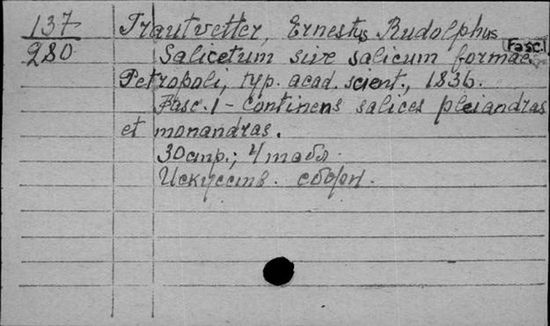 137 Trautvetter, Ernestus Rudolphus
280 Salicetum sive salicum formae Fasc.1
Petropoli, typ. acad. scient., 1836.
Fasc. 1 - continens salices pleiandras
et monandras.
30 стр.; 4 табл.
Искусств. сборн.